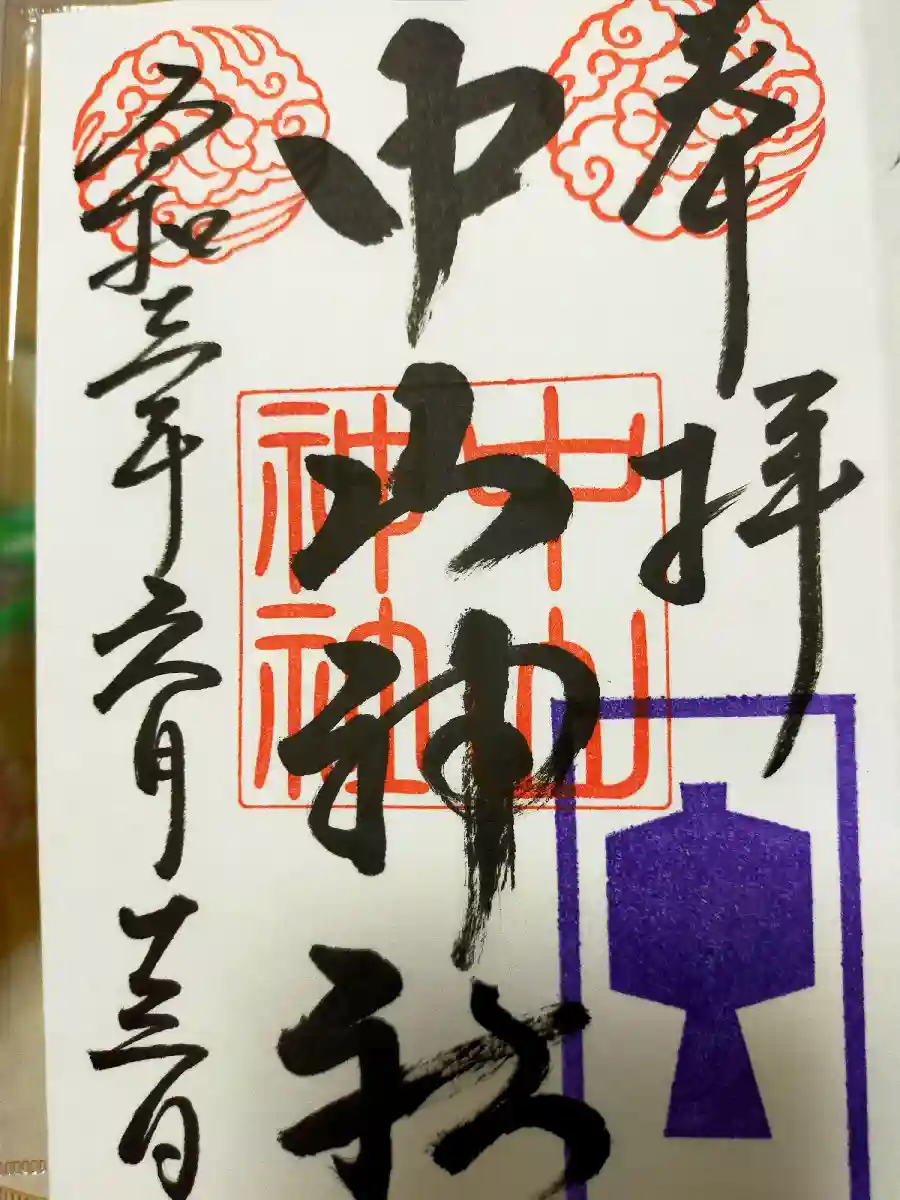 奉拝
中山神社
中山神社
令和三年六月十三日